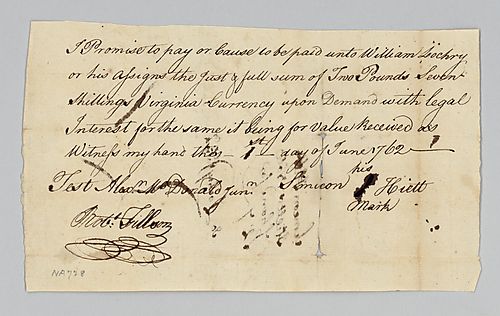 I Promise to pay or Cause to be paid unto William Lochry
or his Assigns the Just & full sum of Two Pounds Seven
Shillings Virginia Currency upon Demand with legal
Interest for the same it being for Value Received as
Witness my hand this 1st day of June 1762
his
Test Alexr. McDonald Junr. Simeon Hiett
Mark
Robt.
NA778